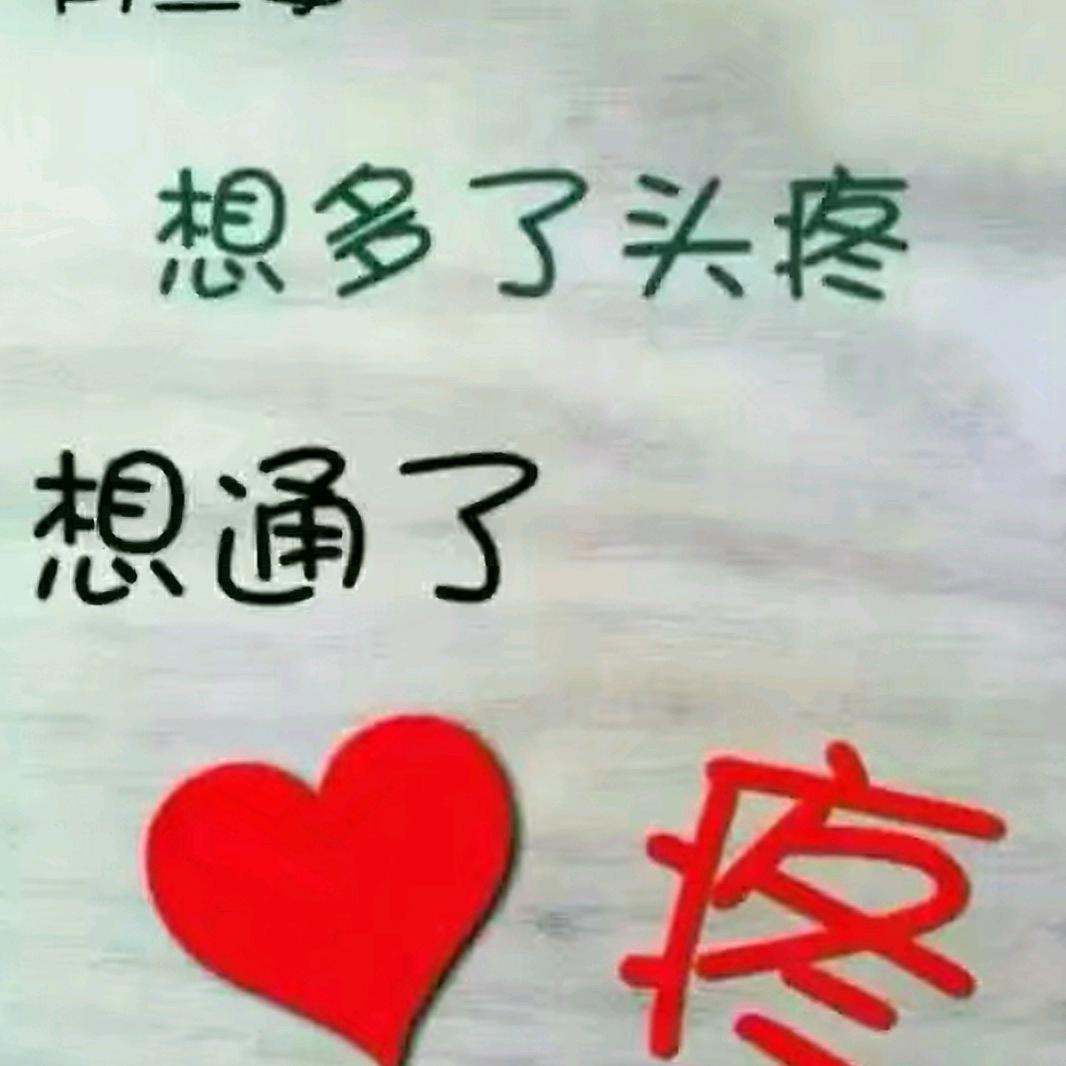 想多了头疼
想通了
疼